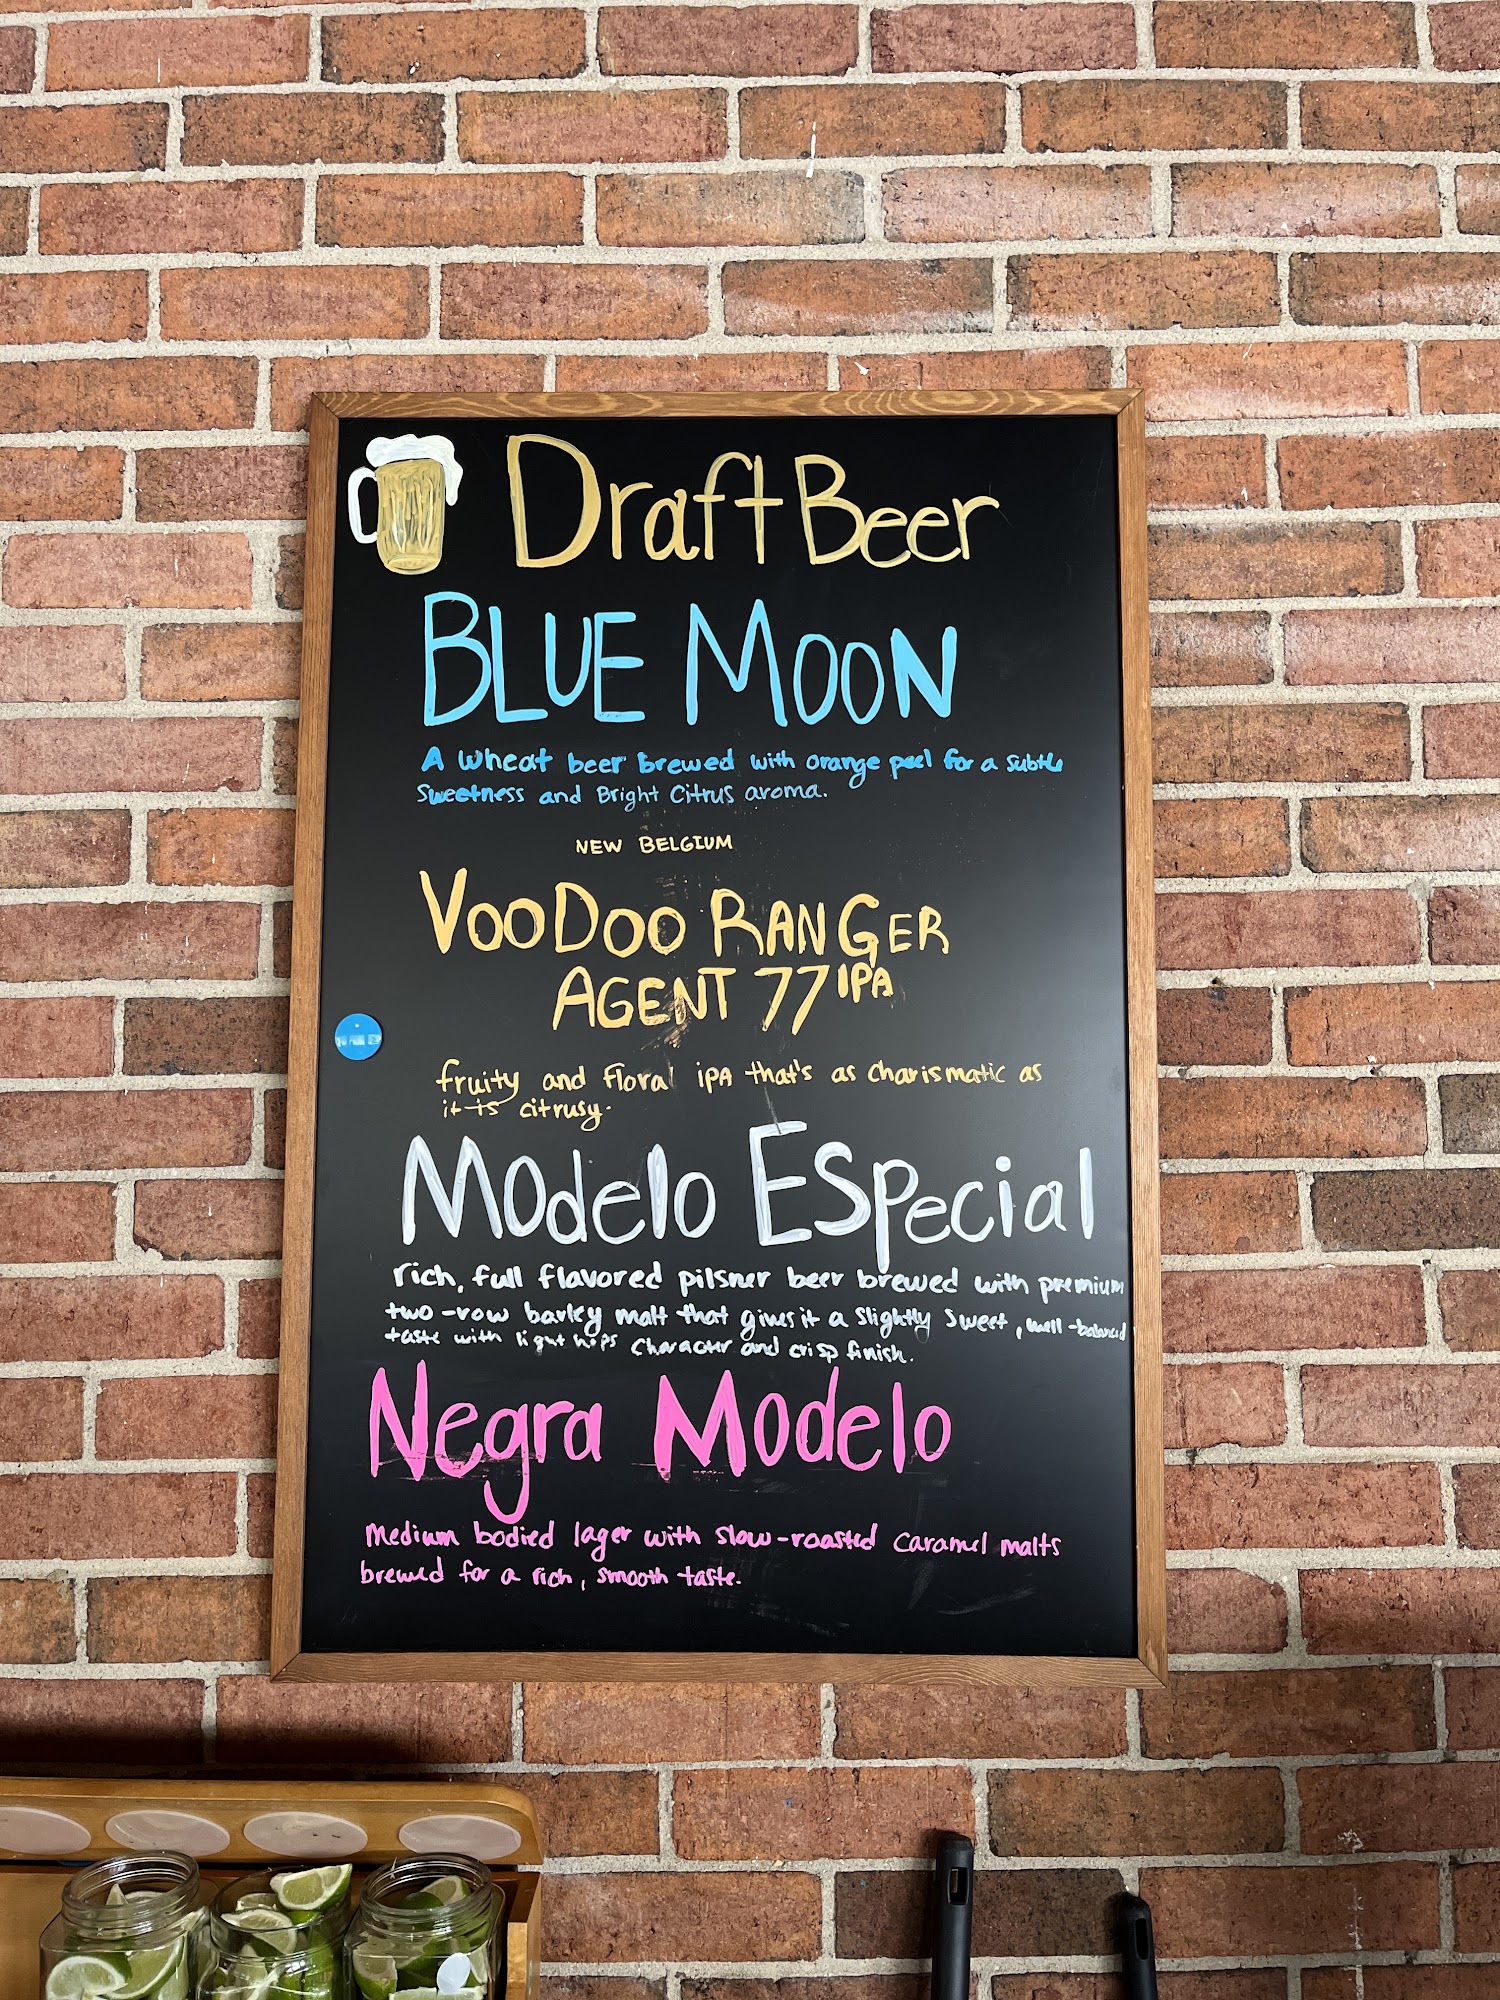 Draft Beer
BLUE MOON
A wheat beer brewed with orange peel for a subtle
sweetness and Bright Citrus aroma.
NEW BELGIUM
VOODOO RANGER
AGENT 77 IPA
fruity and Floral iPA that's as charismatic as
it is citrusy.
Modelo ESpecial
rich, full flavored pilsner beer brewed with premium
two-row barley malt that gives it a slightly sweet, well-balanced
taste with light hops character and crisp finish.
Negra Modelo
Medium bodied lager with slow-roasted caramel malts
brewed for a rich, smooth taste.